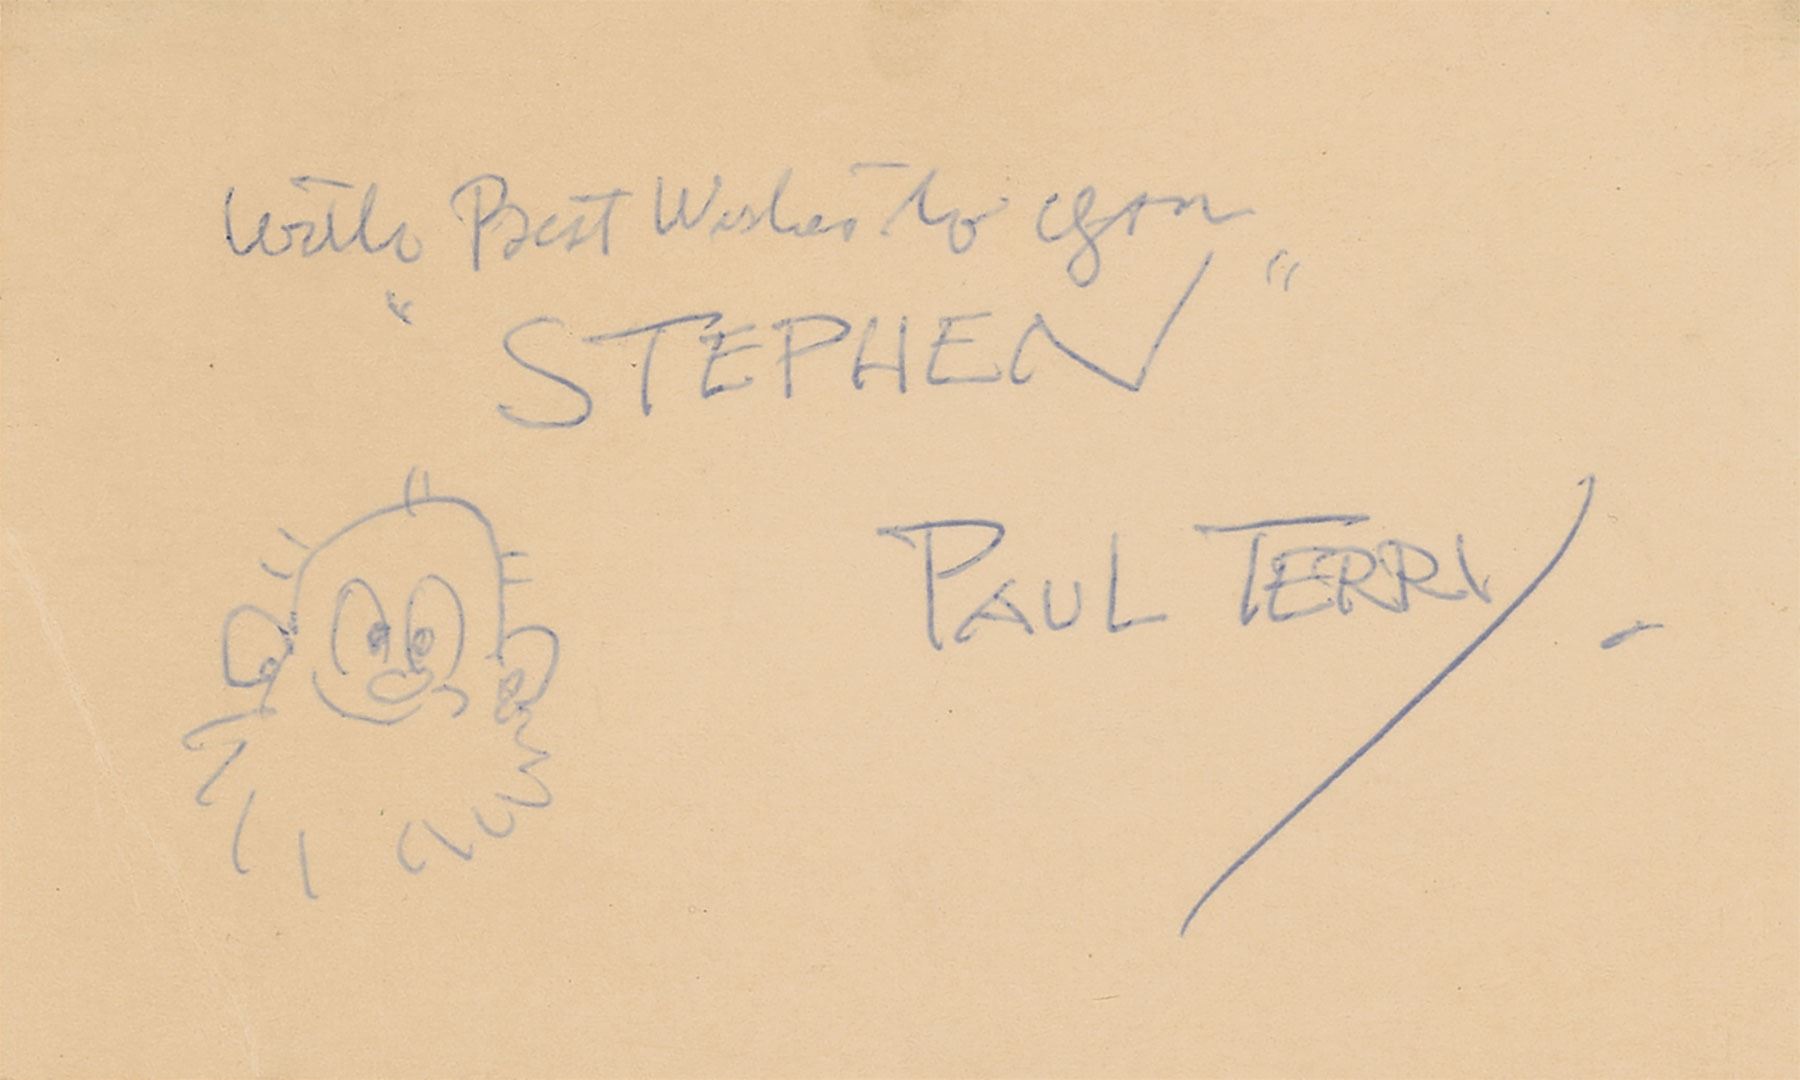 With Best Wishes to you
"STEPHEN"
PAUL TERRY.